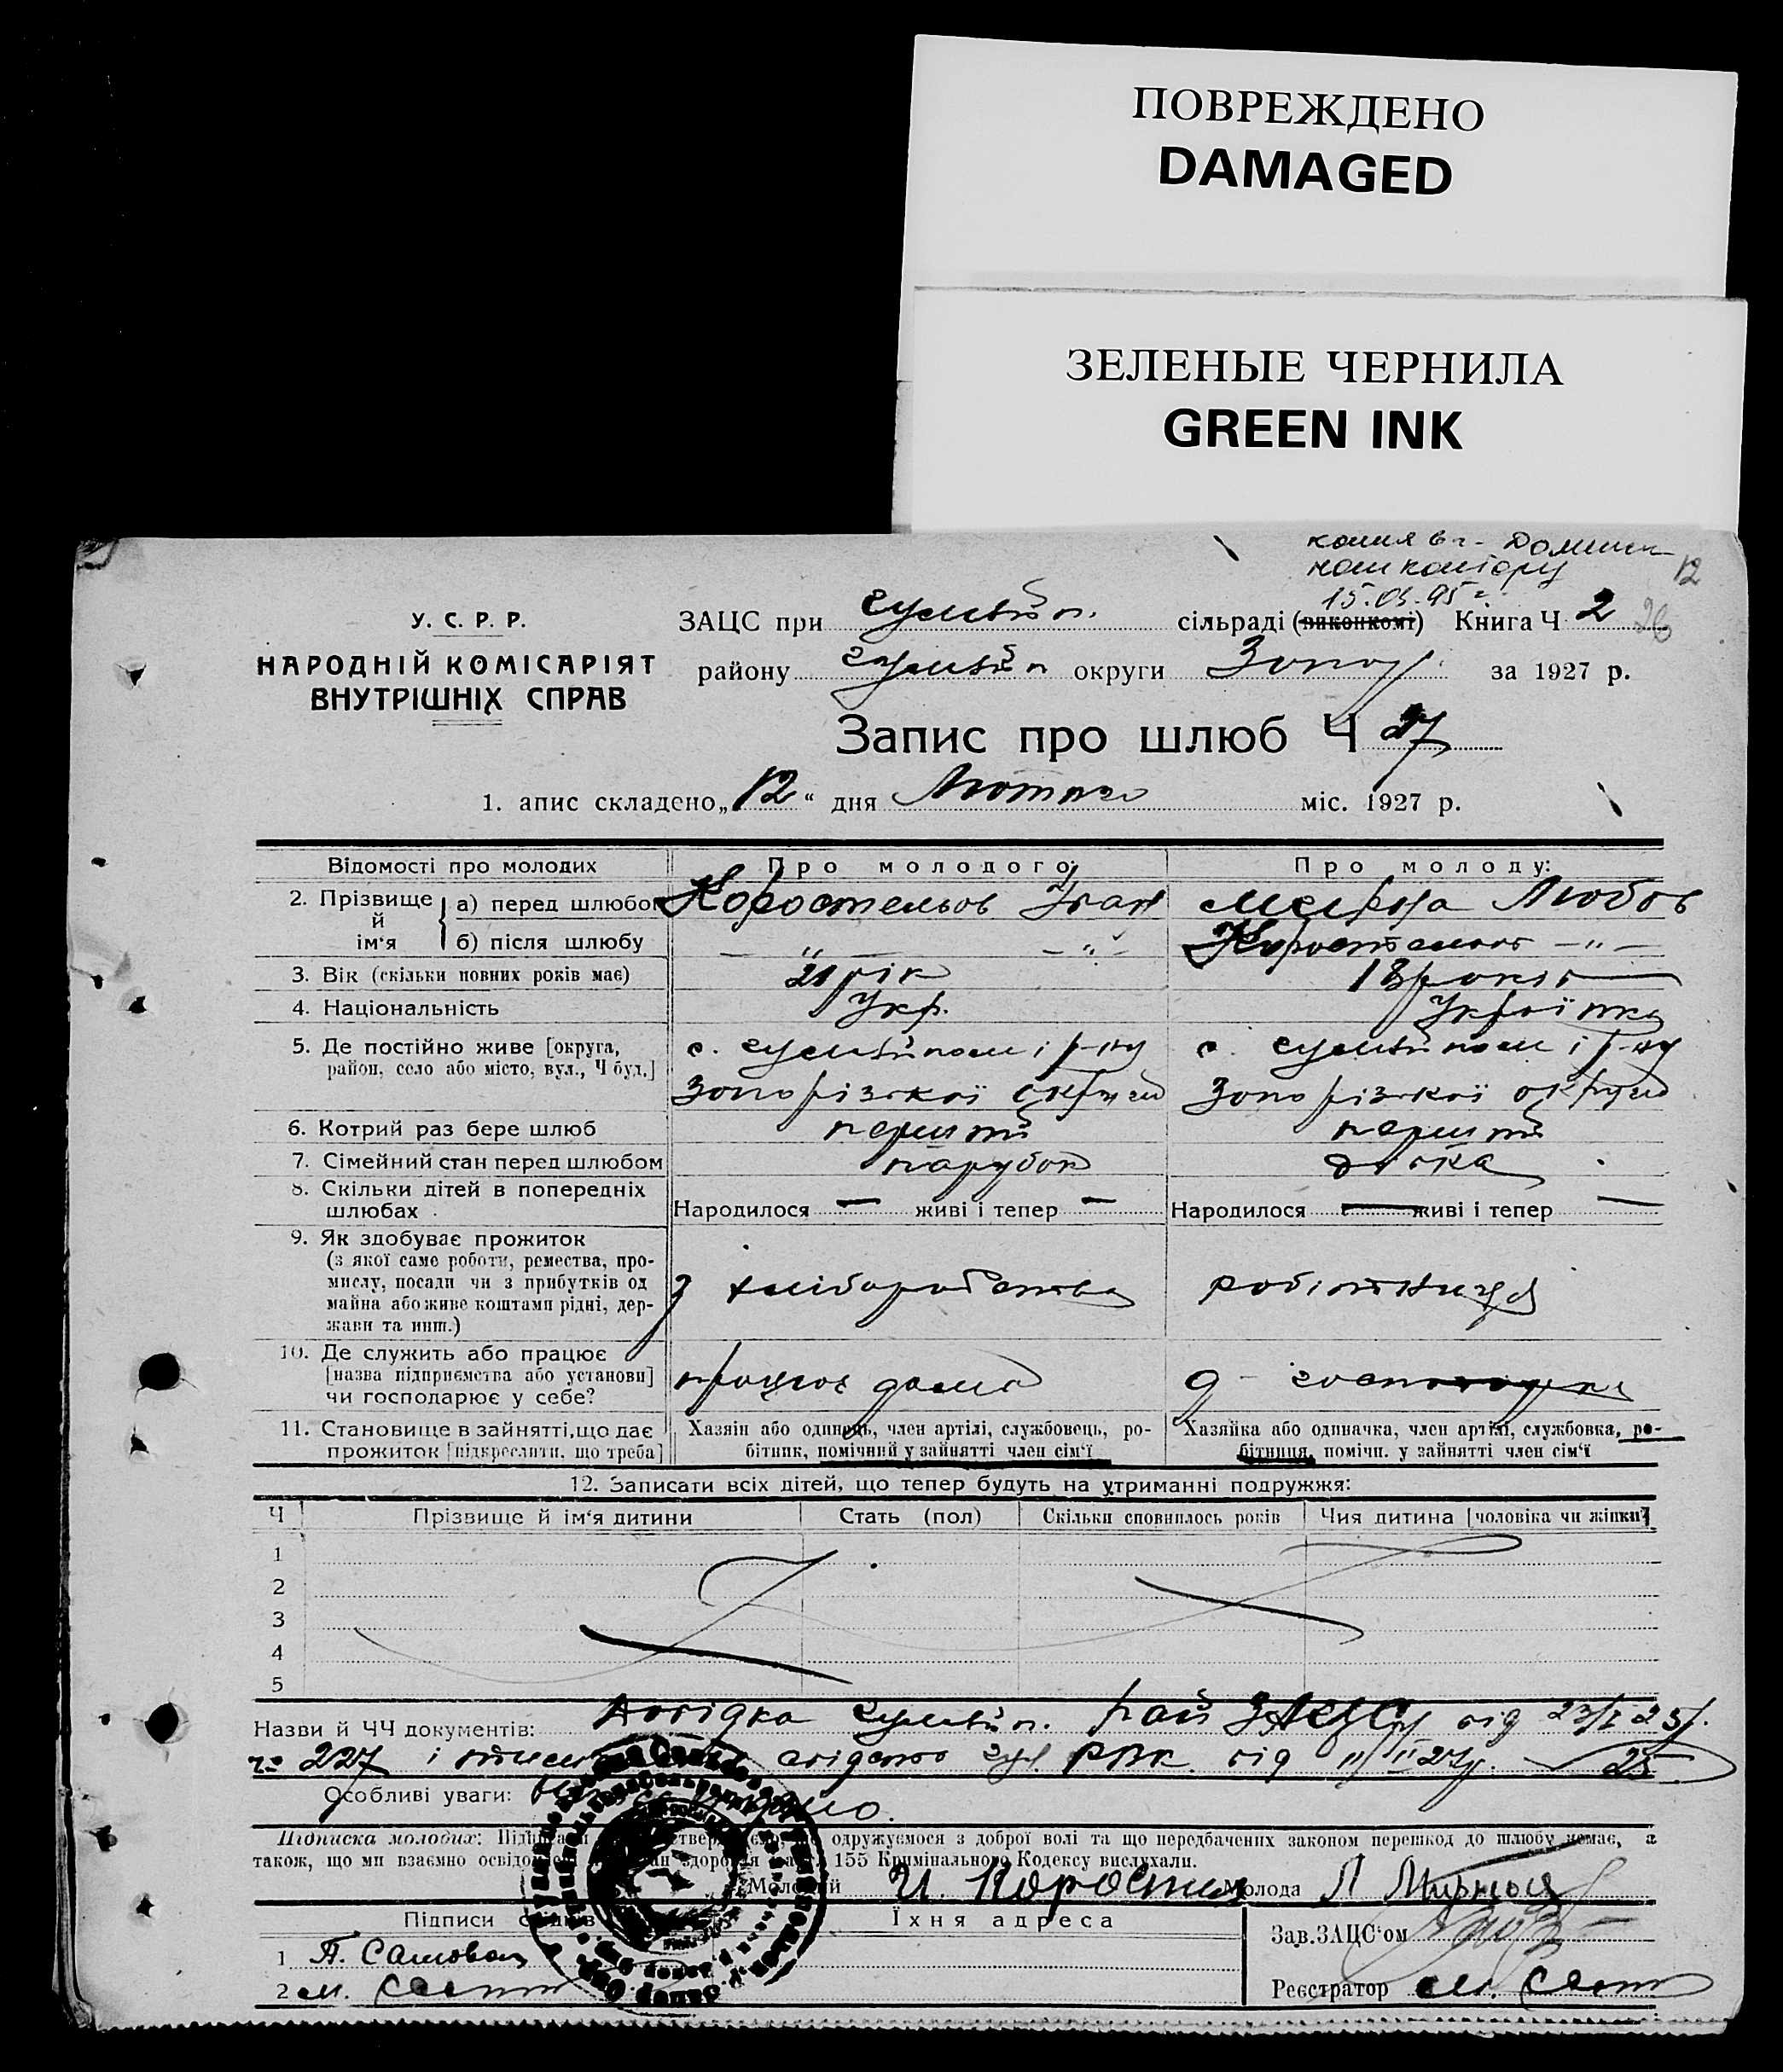 ПОВРЕЖДЕНО
DAMAGED
ЗЕЛЕНЫЕ ЧЕРНИЛА
GREEN INK
копия в г.
15.03.95 г.
12
26
У. С. Р. Р.
НАРОДНІЙ КОМІСАРІЯТ
ВНУТРІШНІХ СПРАВ
ЗАЦС при Гуляйп. сільраді (виконкомі) Книга Ч 2
району Гуляйп округи Запор. за 1927 р.
Запис про шлюб Ч 27
1. апис складено „12“ дня Лютого міс. 1927 р.
Відомості про молодих Про молодого: Про молоду:
2. Прізвище й ім'я
а) перед шлюбом Коростельов Іван Любов
б) після шлюбу — " — — " — — " —
3. Вік (скільки повних років має) 21 рік 18 років
4. Національність Укр. Українка
5. Де постійно живе [округа, район, село або місто, вул., Ч буд.]
с. Гуляйполе і р-ну Запорізької округи
с. Гуляйполе і р-ну Запорізької округи
6. Котрий раз бере шлюб перший перший
7. Сімейний стан перед шлюбом парубок дівка
8. Скільки дітей в попередніх шлюбах
Народилося — живі і тепер — Народилося — живі і тепер —
9. Як здобуває прожиток
(з якої саме роботи, ремества, промислу, посади чи з прибутків од майна або живе коштами рідні, держави та инш.)
з хліборобства робітниця
10. Де служить або працює
[назва підприємства або установи]
чи господарює у себе?
працює дома
11. Становище в зайнятті, що дає прожиток [підкреслити, що треба]
Хазяїн або одинець, член артілі, службовець, робітник, помічний у зайнятті член сім'ї
Хазяйка або одиначка, член артілі, службовка, робітниця, помічн. у зайнятті член сім'ї
12. Записати всіх дітей, що тепер будуть на утриманні подружжя:
Ч Прізвище й ім'я дитини Стать (пол) Скільки сповнилось років Чия дитина [чоловіка чи жінки]
1
2
3
4
5
Назви й ЧЧ документів: Довідка Гуляйп. рай ЗАЦСу від 23/I 25р.
№ 227 і РВК від 11/II 27р. 25
Особливі уваги:
Підписка молодих: одружуємося з доброї волі та що передбачених законом перешкод до шлюбу немає, а
також, що ми взаємно 155 Кримінального Кодексу вислухали.
Молодий И. Молода Л
Підписи Їхня адреса Зав.ЗАЦС'ом
1 П.
2 М. Реєстратор М.